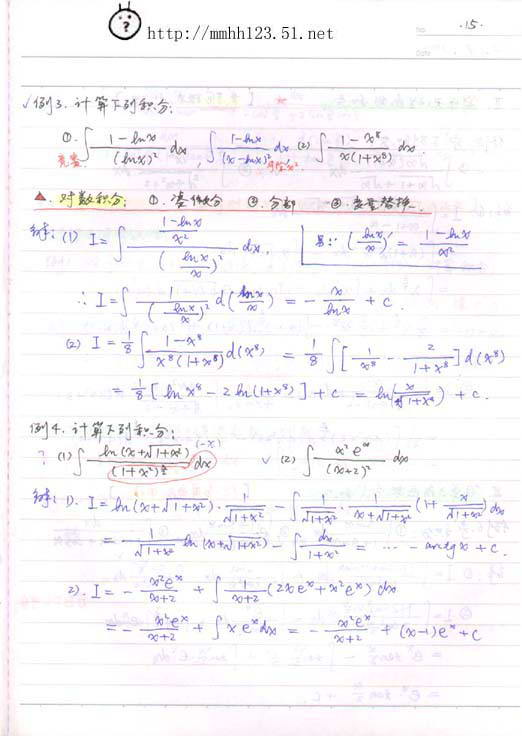 http://mmhh123.51.net
No.
·15·
Date
√例3. 计算下列积分:
①. ∫ (1-lnx)/(lnx)² dx, ∫ (1-lnx)/(x-lnx)² dx (2) ∫ (1-x⁸)/(x(1+x⁸)) dx
▲. 对数积分: ①. 凑微分 ②. 分部 ③. 变量替换.
解: (1) I=∫ ((1-lnx)/x²)/((lnx/x)²) dx, ∵ (lnx/x)' = (1-lnx)/x²
∴ I=∫ 1/(lnx/x)² d(lnx/x) = - x/lnx + c.
(2) I = 1/8 ∫ (1-x⁸)/(x⁸(1+x⁸)) d(x⁸) = 1/8 ∫ [1/x⁸ - 2/(1+x⁸)] d(x⁸)
= 1/8 [ln x⁸ - 2 ln(1+x⁸)] + c = ln(x/∜(1+x⁸)) + c.
例4. 计算下列积分:
? (1) ∫ ln(x+√(1+x²))/(1+x²)^(3/2) (-x) dx √ (2) ∫ x²eˣ/(x+2)² dx
解: 1). I = ln(x+√(1+x²))·1/√(1+x²) - ∫ 1/√(1+x²) · 1/(x+√(1+x²)) (1+ x/√(1+x²)) dx
= 1/√(1+x²) ln(x+√(1+x²)) - ∫ dx/(1+x²) = ··· - arctgx + c.
2). I = - x²eˣ/(x+2) + ∫ 1/(x+2) (2xeˣ+x²eˣ) dx
= - x²eˣ/(x+2) + ∫ xeˣdx = - x²eˣ/(x+2) + (x-1)eˣ + c